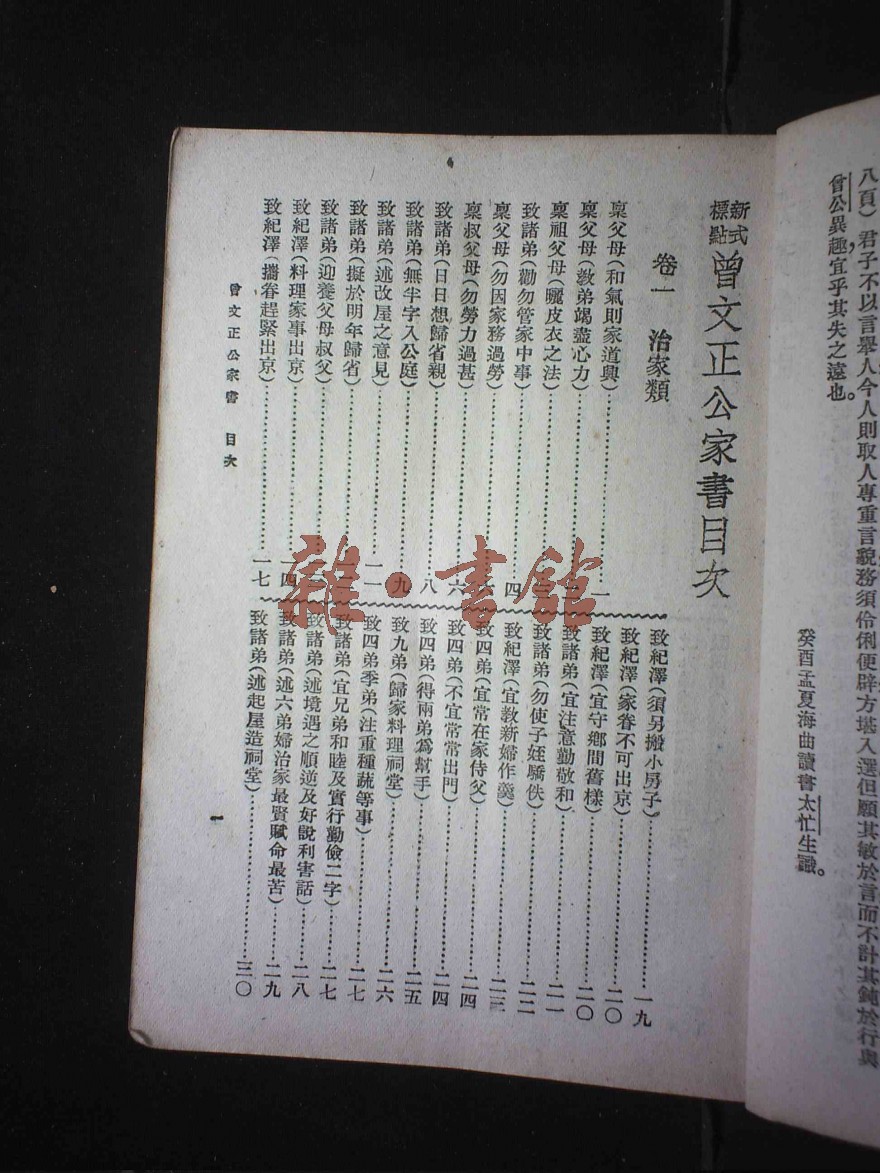 八頁）君子不以言舉人今人則取人專重言貌務須伶俐便辟方堪入選但願其敏於言而不計其鈍於行與
曾公異趣宜乎其失之遠也。
癸酉孟夏海曲讀書太忙生識。
新式標點曾文正公家書目次
卷一　治家類
稟父母（和氣則家道興）……一
稟父母（教弟竭盡心力）……
稟祖父母（曬皮衣之法）……
致諸弟（勸勿管家中事）……
稟父母（勿因家務過勞）……四
稟叔父母（勿勞力過甚）……
致諸弟（日日想歸省親）……六
致諸弟（無半字入公庭）……八
致諸弟（述改屋之意見）……九
致諸弟（擬於明年歸省）……一一
致諸弟（迎養父母叔父）……
致紀澤（料理家事出京）……一四
致紀澤（攜眷趕緊出京）……一七
致紀澤（須另搬小房子）……一九
致紀澤（家眷不可出京）……二〇
致紀澤（宜守鄉間舊樣）……二〇
致諸弟（宜注意勤敬和）……二一
致諸弟（勿使子姪驕佚）……二二
致紀澤（宜教新婦作羹）……二三
致四弟（宜常在家侍父）……二四
致四弟（不宜常常出門）……二四
致四弟（得兩弟爲幫手）……二五
致九弟（歸家料理祠堂）……二六
致四弟季弟（注重種蔬等事）……二七
致諸弟（宜兄弟和睦及實行勤儉二字）……二七
致諸弟（述境遇之順逆及好說利害話）……二八
致諸弟（述六弟婦治家最賢賦命最苦）……二九
致諸弟（述起屋造祠堂）……三〇
曾文正公家書　目次
一
雜·書館